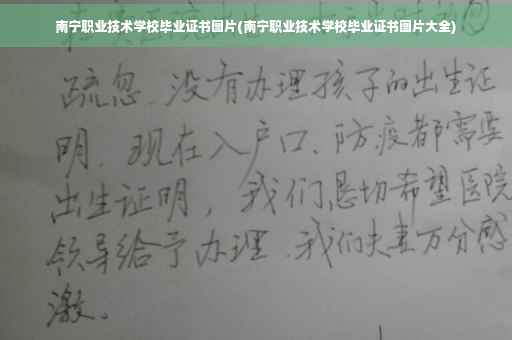 南宁职业技术学校毕业证书图片(南宁职业技术学校毕业证书图片大全)
疏忽、没有办理孩子的出生证
明、现在入户口、防疫都需要
出生证明，我们恳切希望医院
领导给予办理、我们夫妻万分感
激。